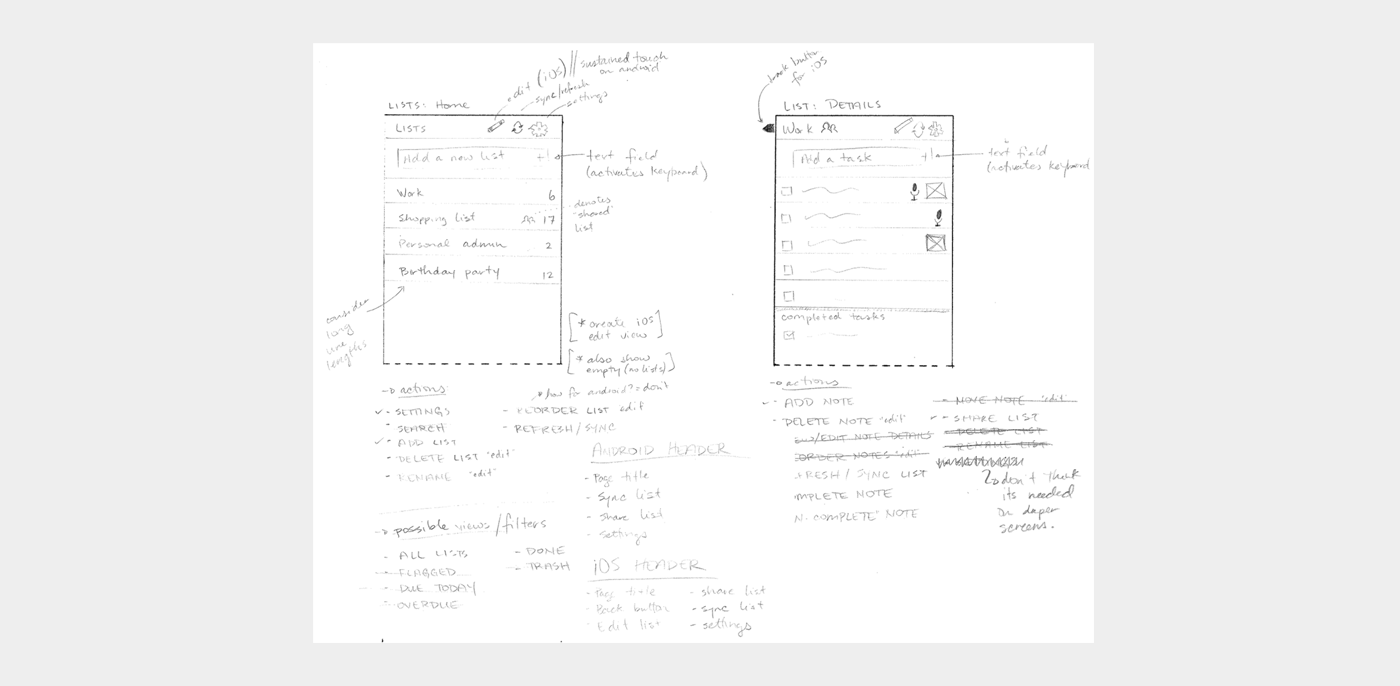 edit (iOS) || sustained touch
on android
sync/refresh
settings
LISTS: Home
LISTS
Add a new list +
text field
(activates keyboard)
Work 6
Shopping list 17
denotes
"shared"
list
Personal admin 2
Birthday party 12
consider
long
line
lengths
[* create iOS
edit view]
[* also show
empty (no lists)]
back button
for iOS
LIST: DETAILS
Work
Add a task +
text field
(activates keyboard
completed tasks
→ actions
- SETTINGS
- SEARCH
- ADD LIST
- DELETE LIST "edit"
- RENAME "edit"
how for android? = don't
- REORDER LIST edit
- REFRESH/SYNC
ANDROID HEADER
- Page title
- Sync list
- Share list
- Settings
→ possible views/filters
- ALL LISTS
- FLAGGED
- DUE TODAY
- OVERDUE
- DONE
- TRASH
iOS HEADER
- Page title
- Back button
- Edit list
- share list
- sync list
- settings
→ actions
- ADD NOTE
- DELETE NOTE "edit"
/EDIT NOTE DETAILS
ORDER NOTES "edit"
RESH / SYNC LIST
MPLETE NOTE
N. COMPLETE NOTE
- MOVE NOTE "edit"
- SHARE LIST
- DELETE LIST
- RENAME LIST
don't think
its needed
on
screens.